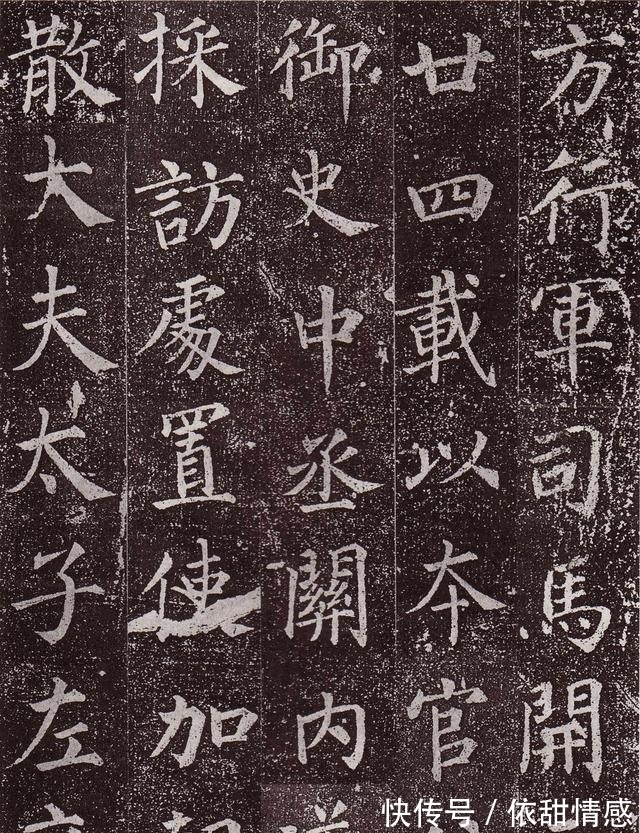 方行軍司馬開
廿四載以夲官
御史中丞關内
採訪處置使加
散大夫太子左
快传号 / 依甜情感